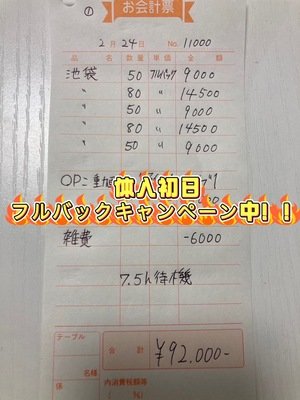 ①
お会計票
2月24日 No. 11000
品名 数量 単価 金額
池袋 50 フルバック 9000
〃 80 〃 14500
〃 50 〃 9000
〃 80 〃 14500
〃 50 〃 9000
OP
体入初日
フルバックキャンペーン中!!
雑費 -6000
7.5h待機
テーブル
名様
係
合計 ¥92.000-
内消費税額等
( %)